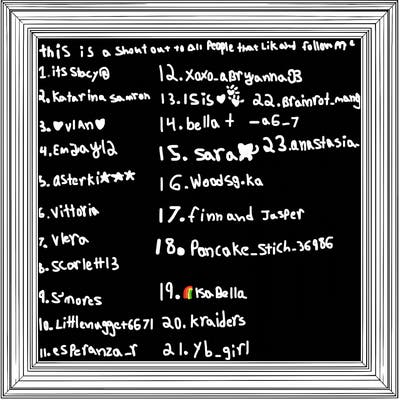 this is a shout out to all People that Lik and follow me
1. itssbcy@
2. Katarina samron
3. ♥vIAn♥
4. Emjayl2
5. asterki★★★
6. Vittoria
7. Vlera
8. Scarlett13
9. S'mores
10. Littlenugget6671
11. esperanza_r
12. xoxo_aBryanna03
13. ISIS♥
14. bella +
15. Sara
16. Woodsg.ka
17. finn and Jasper
18. Pancake_Stich_36986
19. 🌈IsaBella
20. kraiders
21. Yb_girl
22. Brainrot_mang
-a6-7
23. anastasia